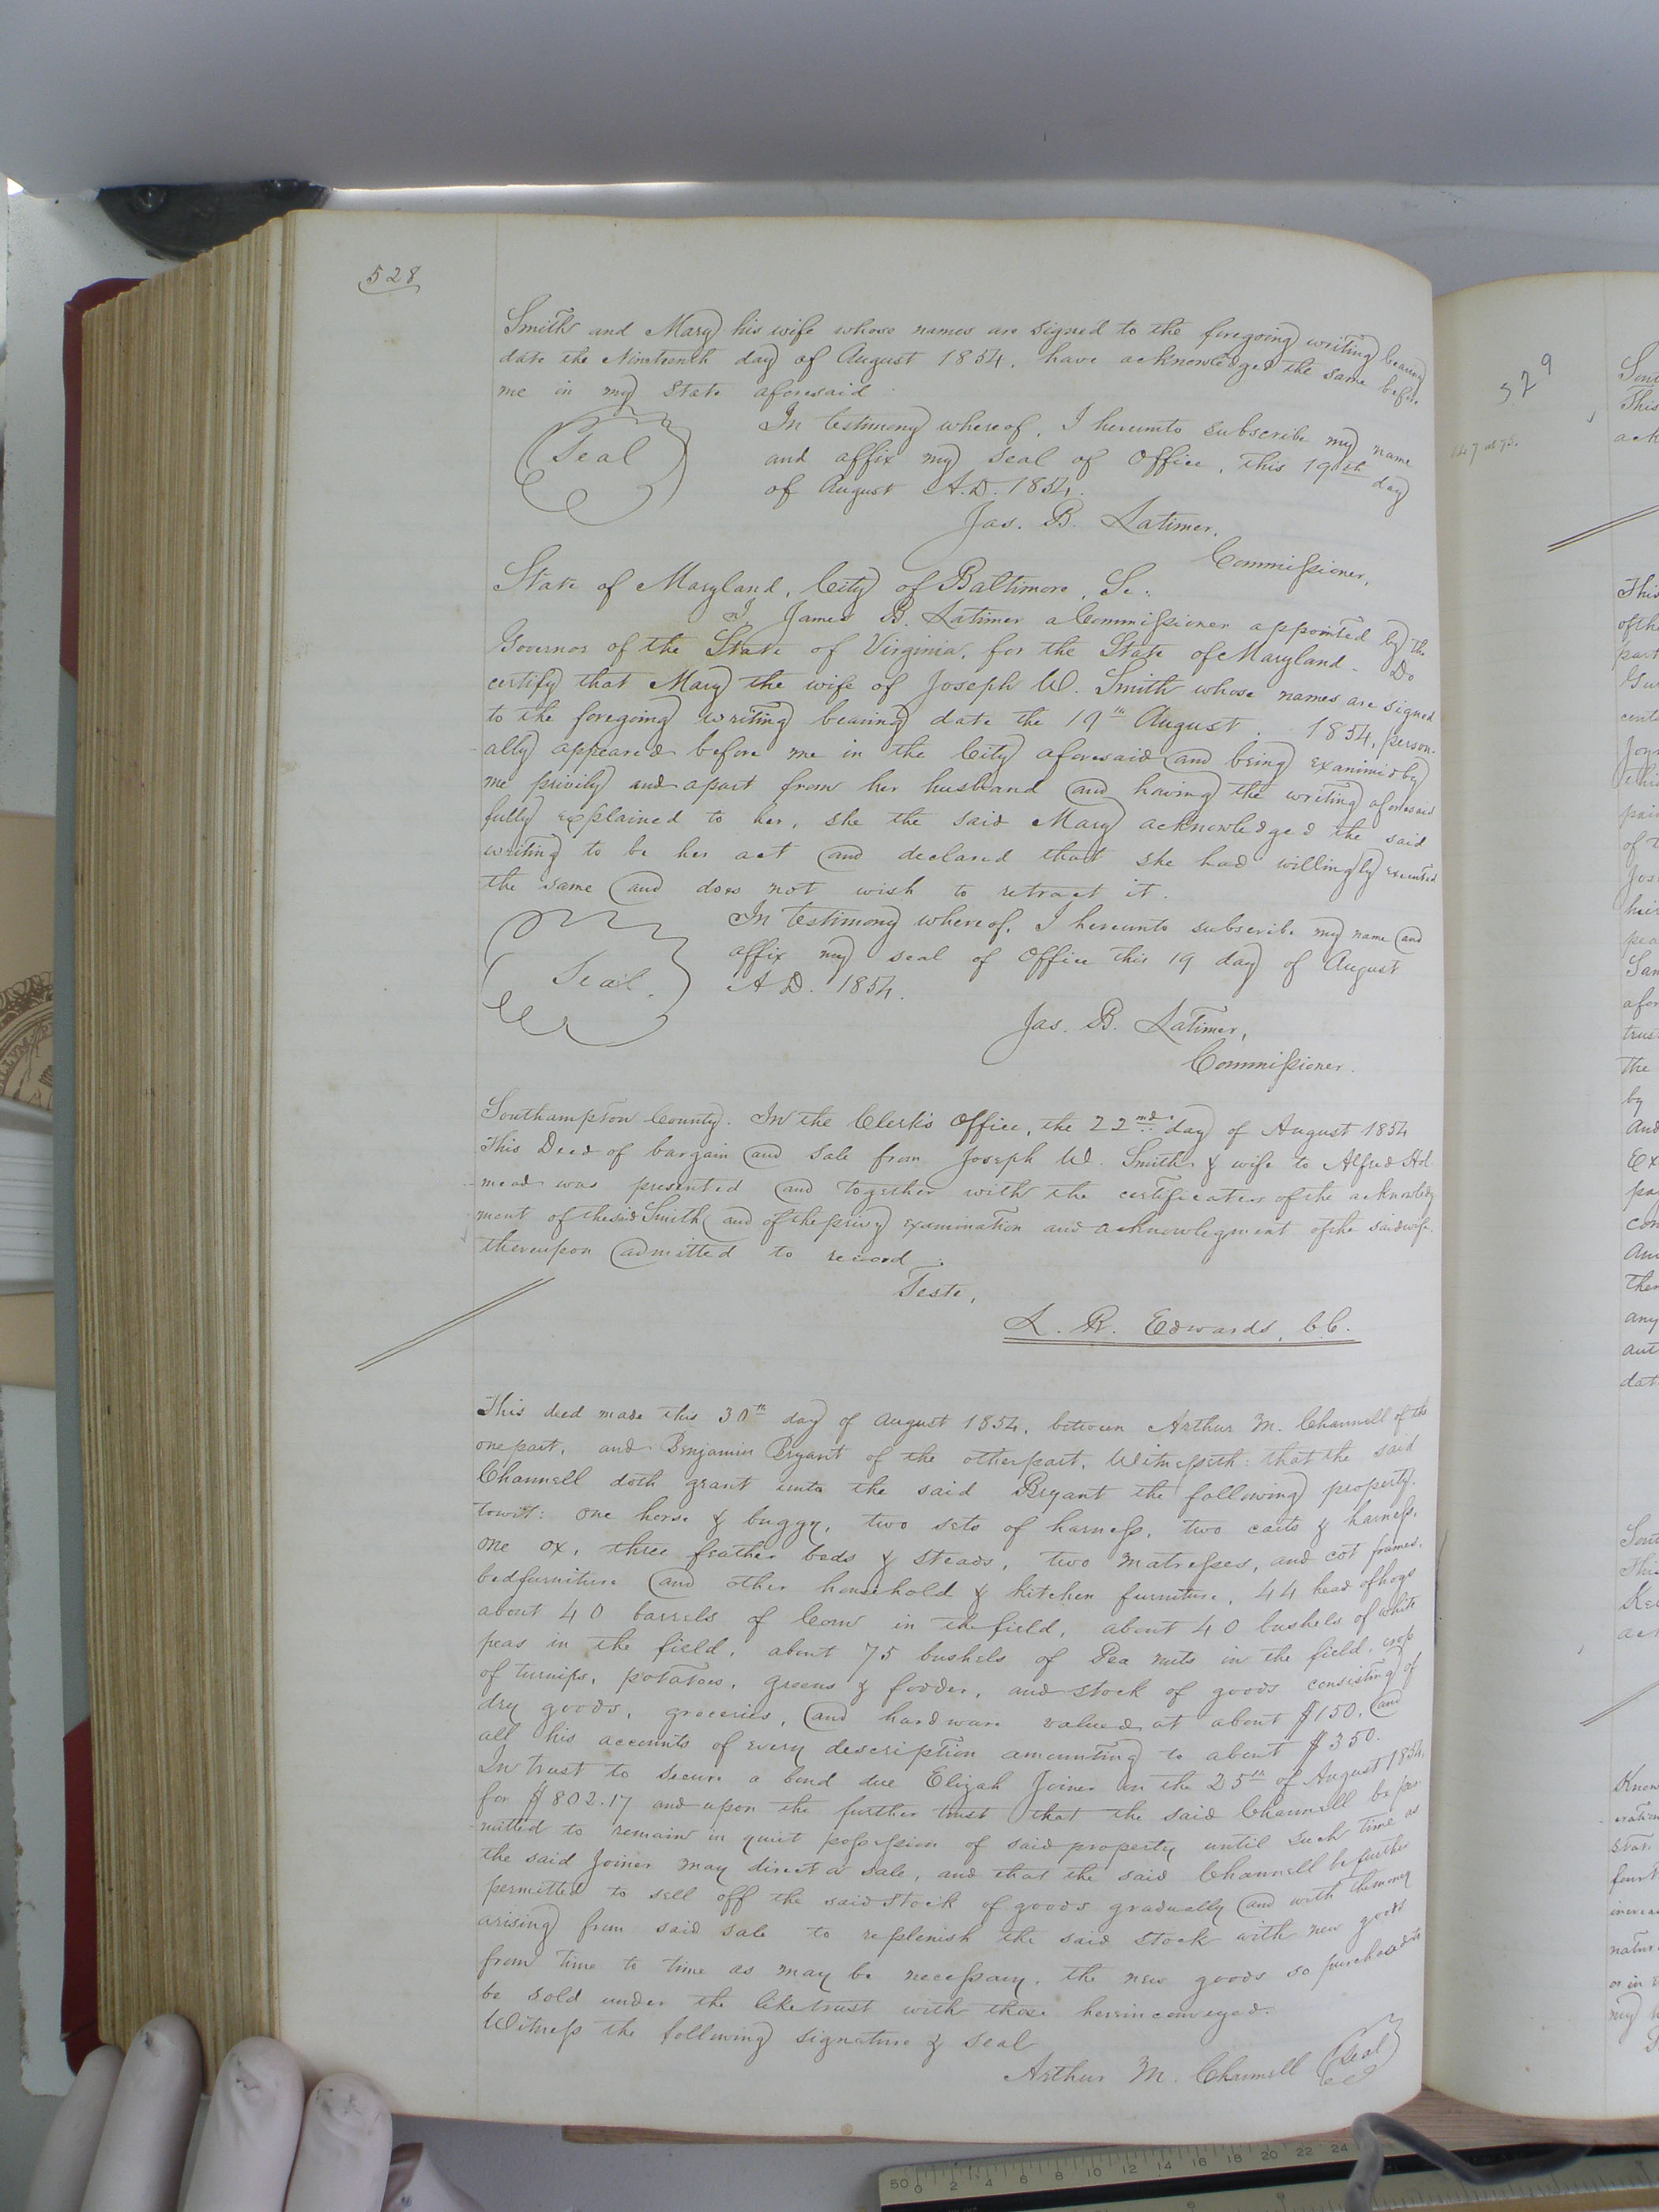 528
Smith and Mary his wife whose names are signed to the foregoing writing bearing
date the Nineteenth day of August 1854, have acknowledged the same before
me in my State aforesaid
In testimony whereof, I hereunto subscribe my name
and affix my seal of Office, this 19th day
of August A.D. 1854.
Seal
Jas. B. Latimer,
Commissioner,
State of Maryland, City of Baltimore, Sc:
I James B. Latimer a Commissioner appointed by the
Governor of the State of Virginia, for the State of Maryland - Do
certify that Mary the wife of Joseph W. Smith whose names are signed
to the foregoing writing bearing date the 19th August. 1854, person-
ally appeared before me in the City aforesaid and being examined by
me privily and apart from her husband and having the writing aforesaid
fully explained to her, she the said Mary acknowledged the said
writing to be her act and declared that she had willingly executed
the same and does not wish to retract it.
In testimony whereof, I hereunto subscribe my name and
affix my seal of Office this 19 day of August
A.D. 1854.
Seal.
Jas. B. Latimer,
Commissioner.
Southampton County. In the Clerk's Office, the 22nd day of August 1854
This Deed of bargain and sale from Joseph W. Smith & wife to Alfred Hol-
mead was presented and together with the certificates of the acknowledg
ment of the said Smith and of the privy examination and acknowlegment of the said wife
thereupon admitted to record.
Teste,
L. R. Edwards, C.C.
This deed made this 30th day of August 1854, between Arthur M. Channell of the
one part, and Benjamin Bryant of the other part, Witnesseth: that the said
Channell doth grant unto the said Bryant the following property,
towit: one horse & buggy, two sets of harness, two carts & harness,
one ox, three feather beds & steads, two matresses, and cot frames,
bedfurniture and other household & kitchen furniture, 44 head of hogs
about 40 barrels of Corn in the field, about 40 bushels of white
peas in the field, about 75 bushels of Pea nuts in the field, crop
of turnips, potatoes, greens & fodder, and stock of goods consisting of
dry goods, groceries, and hardware valued at about $150, and
all his accounts of every description amounting to about $350.
In trust to secure a bond due Elizah Joiner on the 25th of August 1854,
for $802.17 and upon the further trust that the said Channell be per-
mitted to remain in quiet possession of said property until such time as
the said Joiner may direct a sale, and that the said Channell be further
permitted to sell off the said stock of goods gradually and with the money
arising from said sale to replenish the said stock with new goods
from time to time as may be necessary, the new goods so purchased to
be sold under the like trust with those herein conveyed.
Witness the following signature & seal
Arthur M. Channell Seal
529
This
ack
This
of the
part
of
peas
trust
The
by
And
any
date
my
50 0 2 4 6 8 10 12 14 16 18 20 22 24